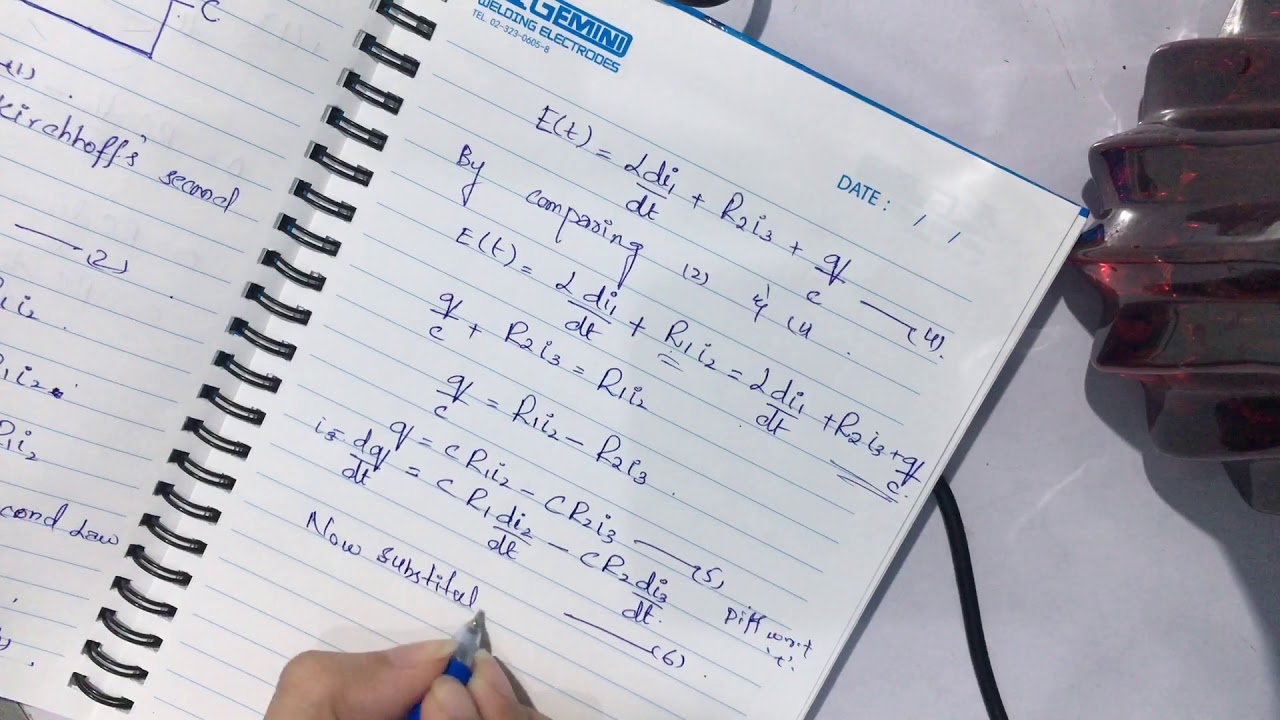 C
(1).
Kirchhoff's second
(2)
R1i2.
R1i2.
R1i2
cond Law
GEMINI
WELDING ELECTRODES
TEL. 02-323-0605-8
DATE : / /
E(t) = L di1/dt + R2i3 + q/c — (4).
By comparing (2) & (4).
E(t) = L di1/dt + R1i2 = L di1/dt + R2i3 + q/c.
q/c + R2i3 = R1i2
q/c = R1i2 - R2i3.
q = CR1i2 - CR2i3 — (5)
i3 = dq/dt = CR1 di2/dt - CR2 di3/dt. Diff w.r.t 't'.
— (6)
Now substitut